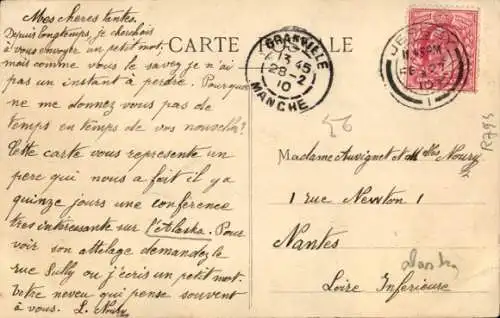 Mes cheres tantes.
Depuis longtemps, je cherchais
à vous envoyer un petit mot,
mais comme vous le savez je n'ai
pas un instant à perdre. Pourquoi
ne me donnez vous pas de
temps en temps de vos nouvelles?
Cette carte vous represente un
pere qui nous a fait il y a
quinze jours une conference
tres interessante sur l'Alaska. Pour
voir son attelage demandez le
rue Sully ou j'écris un petit mot.
Votre neveu qui pense souvent
à vous. L. Noury
CARTE POSTALE
GRANVILLE
13 45
28-2
10
MANCHE
JERSEY
FE 27
10
1
56
R793
Madame Auvignet et Mlles Noury
1 rue Newton 1
Nantes
Loire Inferieure